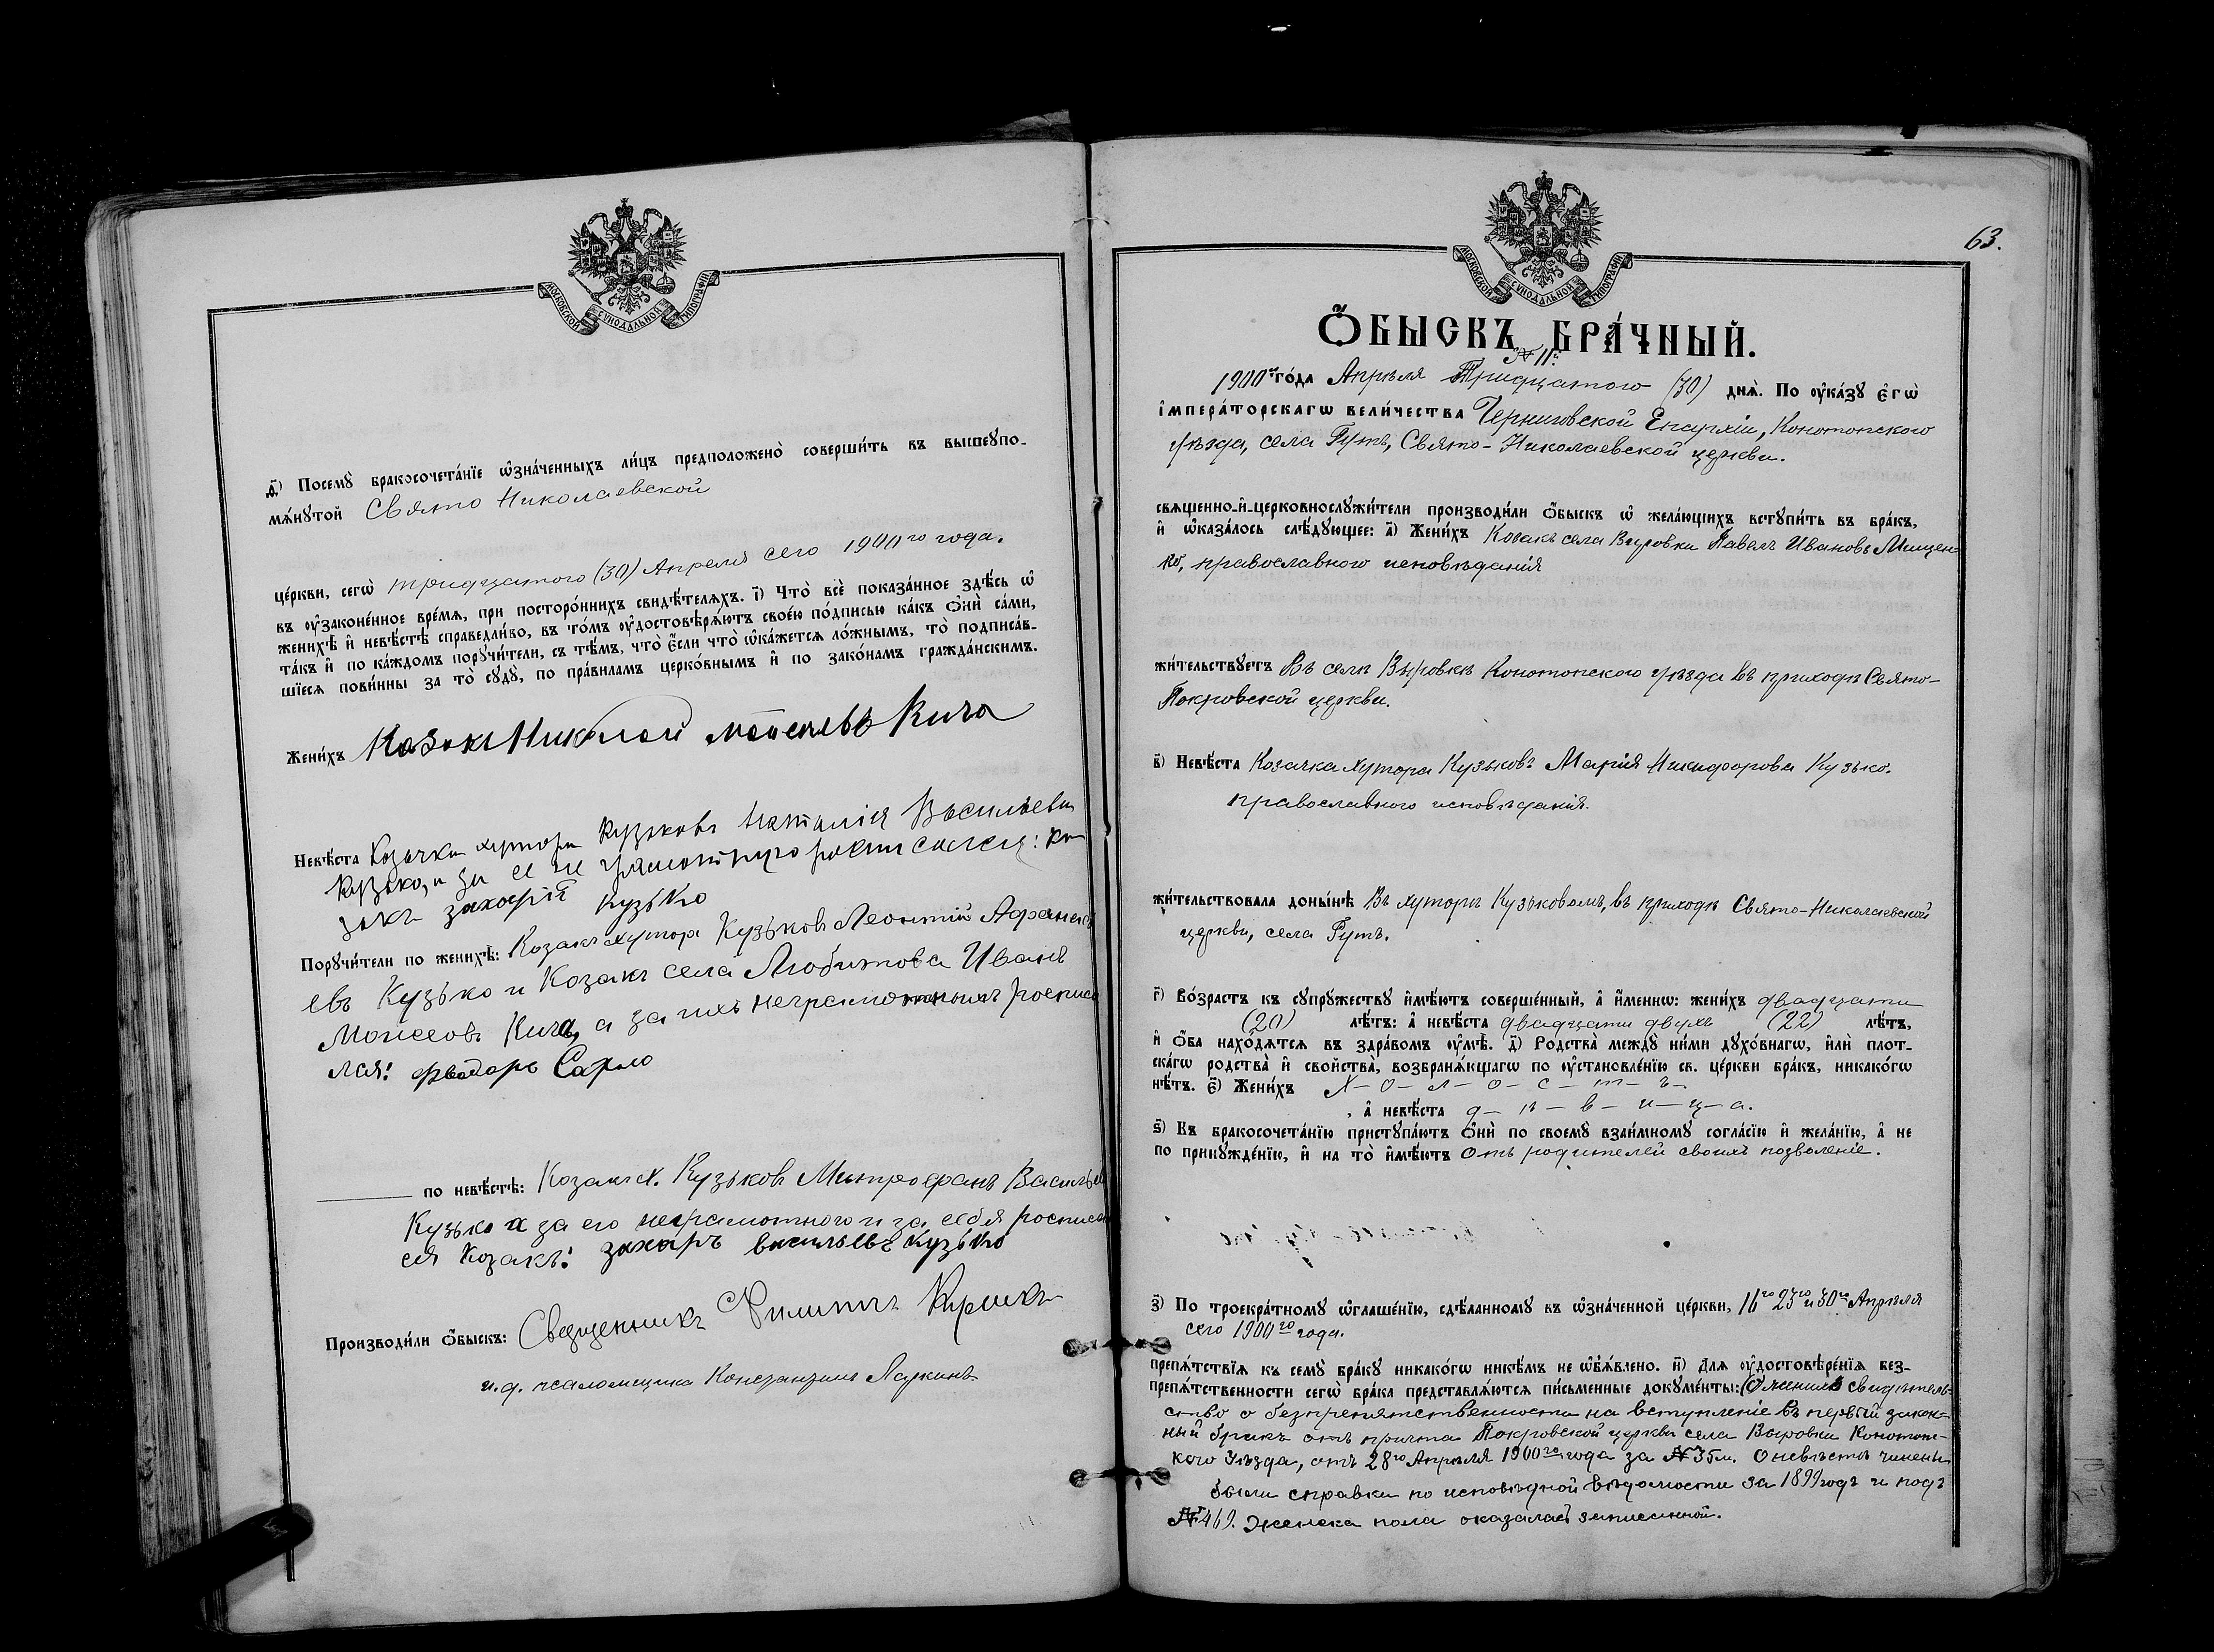 МОСКОВСКОЙ СѴНОДАЛЬНОЙ ТИПОГРАФІИ
д҃) Посемꙋ̀ бракосочета́нїе ѡ҆зна́ченныхъ ли́цъ предположено̀ соверши́ть въ вышеꙋпо-
мѧ́нꙋтой Свято Николаевской
це́ркви, сегѡ̀ тридцатого (30) Апреля сего 1900го года.
въ ᲂу҆зако́ненное вре́мѧ, при посторо́ннихъ свидѣ́телѧхъ. і҃) Что̀ всѐ показа́нное здѣ́сь ѡ҆
женихѣ̀ и҆ невѣ́стѣ справедли́во, въ то́мъ ᲂу҆достовѣрѧ́ютъ свое́ю по́дписью ка́къ ѻ҆нѝ са́ми,
та́къ и҆ по ка́ждомъ порꙋчи́тели, съ тѣ́мъ, что̀ є҆́сли что̀ ѡ҆ка́жетсѧ ло́жнымъ, то̀ подписа́в-
шїесѧ пови́нны за то̀ сꙋдꙋ̀, по пра́виламъ церко́внымъ и҆ по зако́намъ гражда́нскимъ.
Жени́хъ Казакъ Николай Моисеевъ Кича
Невѣ́ста Козачка хутора Кузьковъ Наталія Васильева
Кузько, а за ее не грамотную росписался: ка
закъ захарій кузько
Порꙋчи́тели по женихѣ̀: Козакъ хутора Кузьковъ Леонтій Афанась
евъ Кузько и Козакъ села Любитова Иванъ
Моисеевъ Кича, а за ихъ неграмотныхъ росписа
лся: федоръ
по невѣ́стѣ: Козакъ х. Кузьковъ Митрофанъ Васильев
Кузько а за его неграмотного и за себя росписал
ся Козакъ: захаръ васильевъ кузько
Производи́ли ѻ҆́быскъ: Священникъ Филиппъ
и. д. псаломщика Константинъ
63.
МОСКОВСКОЙ СѴНОДАЛЬНОЙ ТИПОГРАФІИ
Ѻ҆́БЫСКЪ БРА́ЧНЫЙ.
№ 11й
1900го го́да Апрѣля Тридцатого (30) днѧ̀. По ᲂу҆ка́зꙋ є҆гѡ̀
і҆мпера́торскагѡ вели́чества Черниговской Епархіи, Конотопского
уѣзда, села Гутъ, Свято-Николаевской церкви.
свѧщенно-и҆-церковнослꙋжи́тели производи́ли ѻ҆́быскъ ѡ҆ жела́ющихъ встꙋпи́ть въ бра́къ,
и҆ ѡ҆каза́лось слѣ́дꙋющее: а҃) Жени́хъ Козакъ села Вировки Павелъ Ивановъ Мищен-
ко, православного исповѣданія
жи́тельствꙋетъ Въ селѣ Выровкѣ Конотопского уѣзда въ приходѣ Свято-
Покровской церкви.
в҃) Невѣ́ста Козачка хутора Кузьковъ Марія Никифорова Кузько.
православного исповѣданія.
жи́тельствовала доны́нѣ Въ хуторѣ Кузьковомъ, въ приходѣ Свято-Николаевской
церкви, села Гутъ.
г҃) Во́зрастъ къ сꙋпрꙋ́жествꙋ и҆мѣ́ютъ соверше́нный, а҆ и҆́меннѡ: жени́хъ двадцати
(20) лѣ́тъ: а҆ невѣ́ста двадцати двухъ (22) лѣ́тъ,
и҆ ѻ҆́ба нахо́дѧтсѧ въ здра́вомъ ᲂу҆мѣ̀. д҃) Родства̀ междꙋ̀ ни́ми дꙋхо́внагѡ, и҆лѝ плот-
ска́гѡ родства̀ и҆ свойства̀, возбранѧ́ющагѡ по ᲂу҆становле́нїю св. це́ркви бра́къ, никако́гѡ
нѣ́тъ. є҃) Жени́хъ х-о-л-о-с-т-ъ-
, а҆ невѣ́ста д-ѣ-в-и-ц-а.
ѕ҃) Къ бракосочета́нїю пристꙋпа́ютъ ѻ҆нѝ по своемꙋ̀ взаи́мномꙋ согла́сїю и҆ жела́нїю, а҆ не
по принꙋжде́нїю, и҆ на то̀ и҆мѣ́ютъ отъ родителей своихъ позволеніе.
з҃) По троекра́тномꙋ ѡ҆глаше́нїю, сдѣ́ланномꙋ въ ѡ҆зна́ченной це́ркви, 16го 23го и 30го Апрѣля
сего 1900го года.
препѧ́тствїѧ къ семꙋ̀ бра́кꙋ никако́гѡ никѣ́мъ не ѡ҆б̾ѧ́влено. и҃) Длѧ ᲂу҆достовѣре́нїѧ без-
препѧ́тственности сегѡ̀ бра́ка представлѧ́ютсѧ пи́сьменные докꙋме́нты: О женихѣ свидѣтель-
ство о безпрепятственности на вступленіе въ первый закон-
ный бракъ отъ причта Покровской церкви села Выровки Конотоп-
кого Уѣзда, отъ 28го Апрѣля 1900го года за №35м. О невѣстѣ чинены
были справки по исповѣдной вѣдомости за 1899 годъ и подъ
№469. женска пола оказалась записанной.